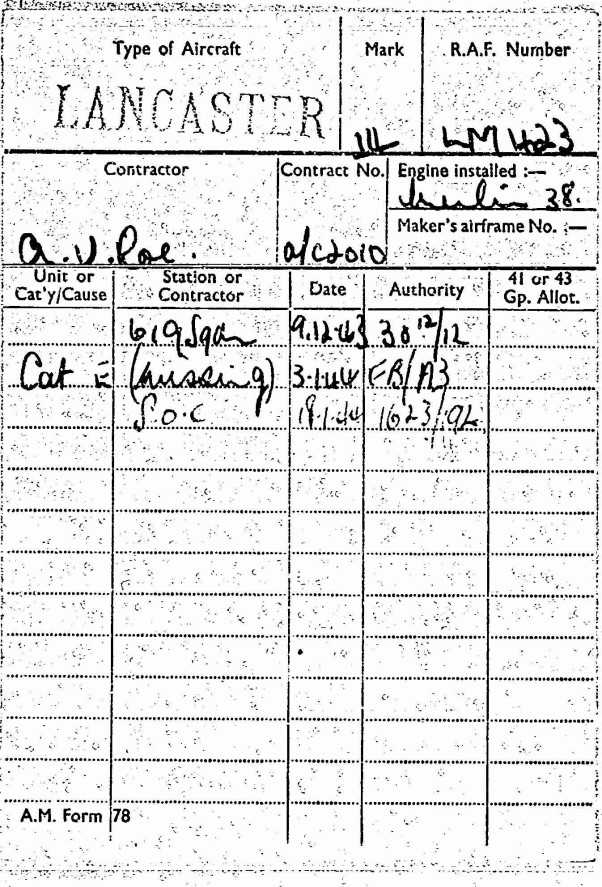 Type of Aircraft Mark R.A.F. Number
LANCASTER III LM423
Contractor Contract No. Engine installed :—
Merlin 38.
Maker's airframe No. :—
A.V. Roe. A/C2010
Unit or Cat'y/Cause Station or Contractor Date Authority 41 or 43 Gp. Allot.
619 Sqdn 9.12.43 30 12/12
Cat E (missing) 3.1.44 FB/A3
S.O.C 18.1.44 1623/92
A.M. Form 78